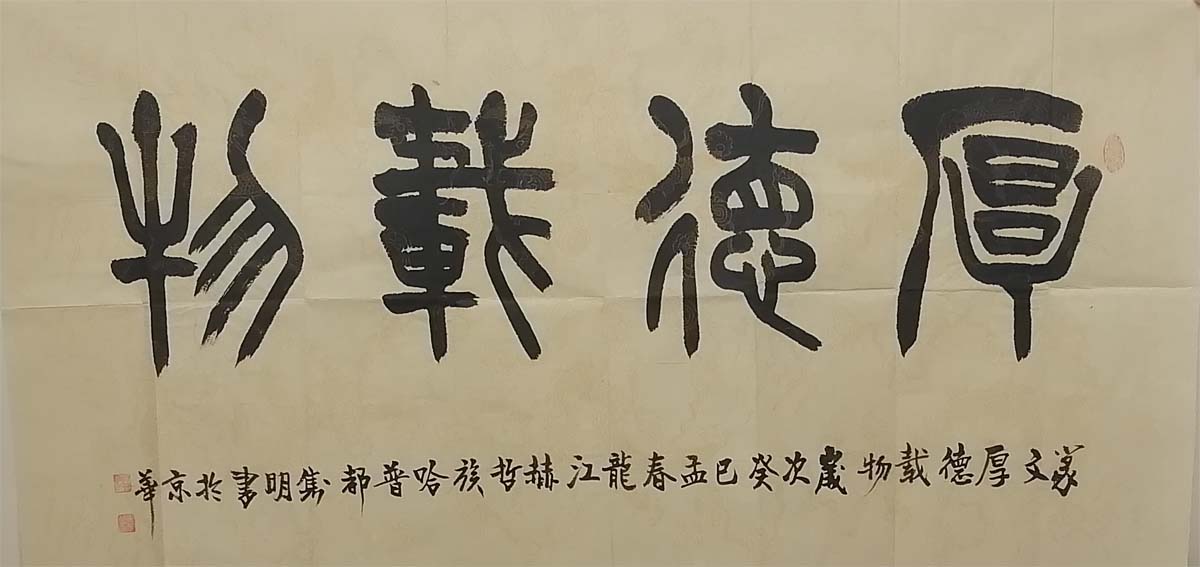 厚德載物
篆文厚德载物歲次癸巳孟春龍江赫哲族哈普都隽明書於京華